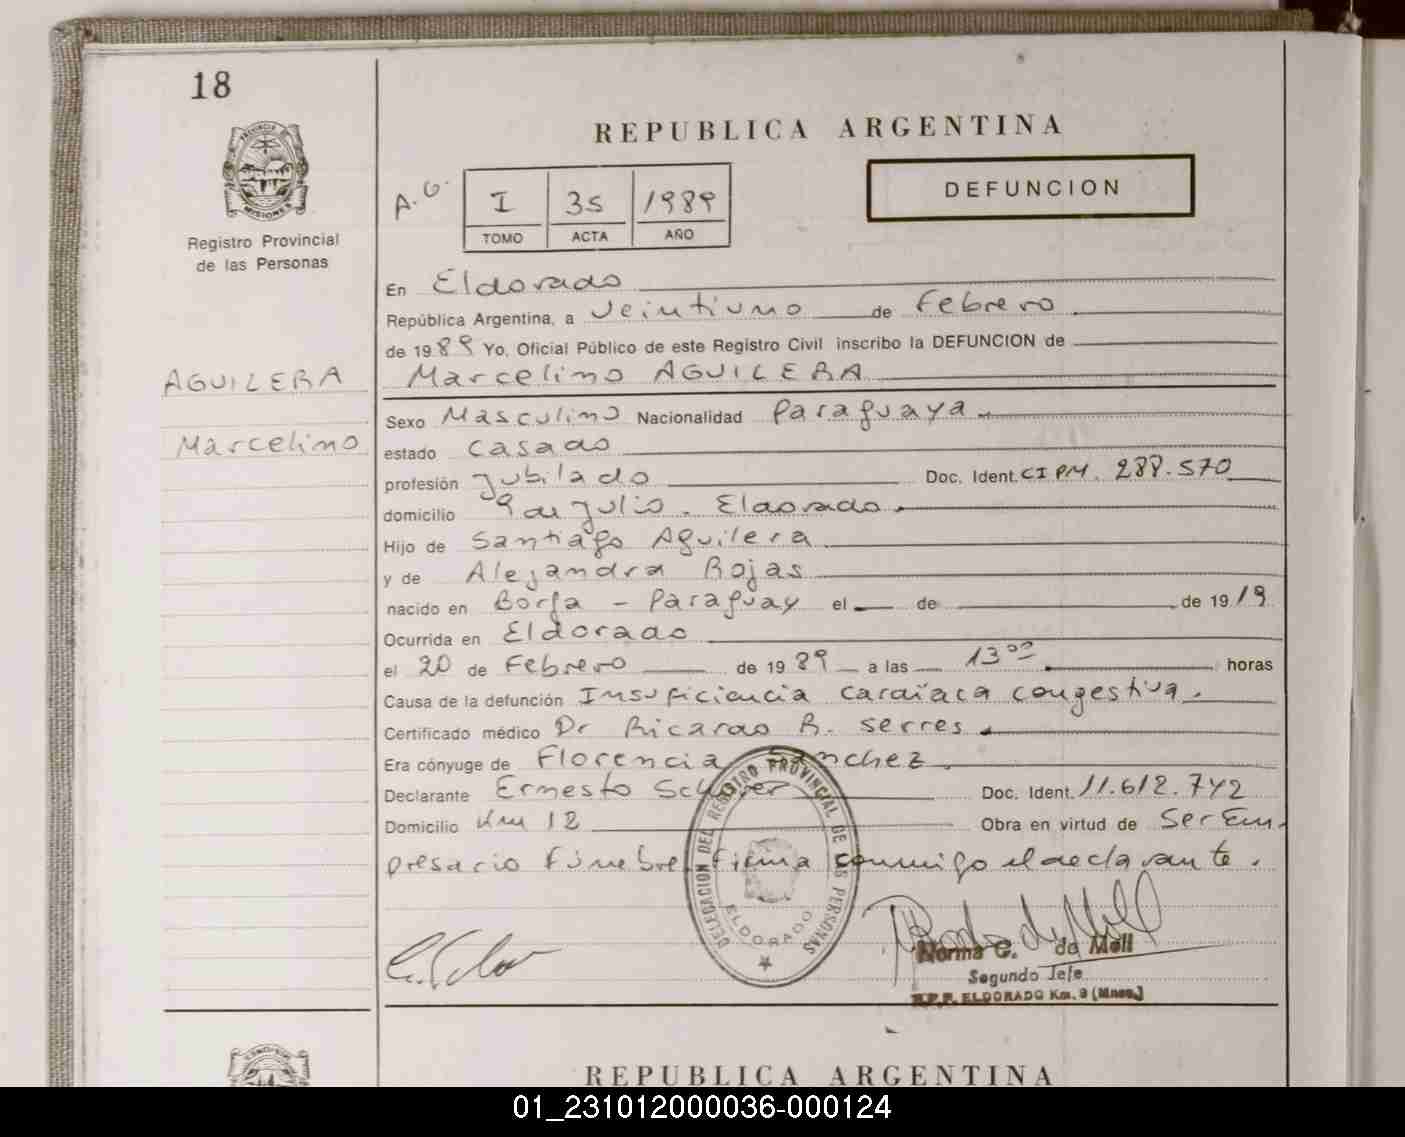 18
REPUBLICA ARGENTINA
PROVINCIA DE
MISIONES
Registro Provincial
de las Personas
A.G.
I 35 1989
TOMO ACTA AÑO
DEFUNCION
En Eldorado
República Argentina, a veintiuno de Febrero
de 1989 Yo, Oficial Público de este Registro Civil inscribo la DEFUNCION de
AGUILERA
Marcelino AGUILERA
Marcelino
Sexo Masculino Nacionalidad Paraguaya
estado casado
profesión jubilado Doc. Ident. CI PM. 288.570
domicilio 9 de julio. Eldorado.
Hijo de Santiago Aguilera
y de Alejandra Rojas
nacido en Borja - Paraguay el de de 1919
Ocurrida en Eldorado
el 20 de Febrero de 1989 a las 13⁰⁰ horas
Causa de la defunción Insuficiencia cardíaca congestiva.
Certificado médico Dr Ricardo R. Serres
Era cónyuge de Florencia Sanchez.
Declarante Ernesto Doc. Ident. 11.612.742
Domicilio Km 12 Obra en virtud de Ser Em-
presario Fúnebre. Firma conmigo el declarante.
DELEGACION DEL REGISTRO PROVINCIAL DE LAS PERSONAS
ELDORADO
Norma C. de Moll
Segundo Jefe
R.P.P. ELDORADO Km. 9 (Mnes.)
REPUBLICA ARGENTINA
01_231012000036-000124